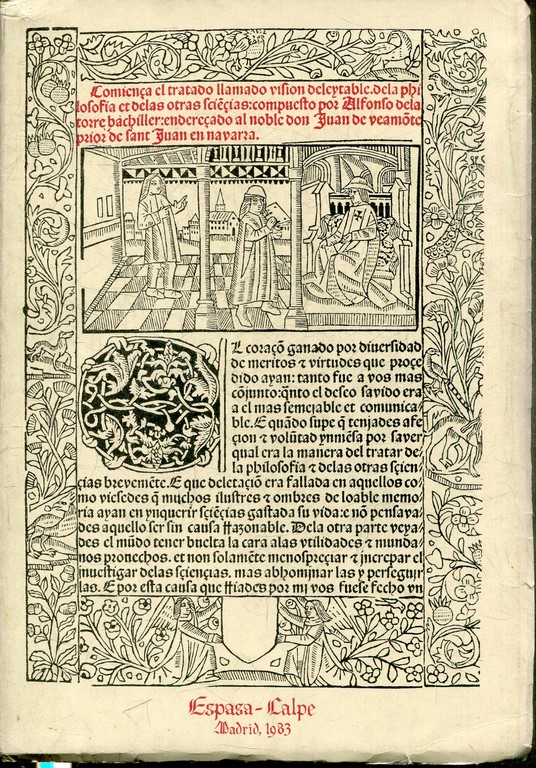 Comiença el tratado llamado vision deleytable.dela phi
losofia et delas otras sciẽçias:compuesto por Alfonso dela
torre bachiller:endereçado al noble don Juan de veamõte
prior de sant Juan en navarra.
L coraçõ ganado por diuersidad
de meritos ⁊ virtudes que proçe
dido ayan: tanto fue a vos mas
cõjunto:q̃nto el desco savido era
a el mas semejable et comunica
ble.E quãdo supe q̃ tenjades afe
çion ⁊ volũtad ynmẽsa por saver
qual era la manera del tratar de
la philosofia ⁊ delas otras sçien
çias brevemẽte.E que deletaçiõ era fallada en aquellos co
mo viesedes q̃ muchos ilustres ⁊ ombres de loable memo
ria ayan en ynquerir sçiẽçias gastada su vida:e nõ pensava
des aquello ser sin causa rrazonable. Dela otra parte veya
des el mũdo tener buelta la cara alas vtilidades ⁊ munda
nos prouechos. et non solamẽte menospreçiar ⁊ jncrepar el
jnuestigar delas sçiençias. mas abhominar las y perseguir
las. E por esta causa que rriades por mj vos fuese fecho vn
Espasa-Calpe
Madrid, 1983